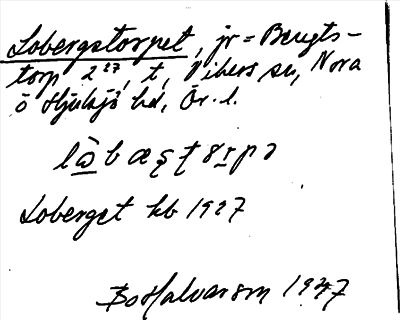 Lobergstorpet, jr = Bengts-
torp 2²⁷, t, Vikers sn, Nora
o Hjulsjö hd, Ör. l.
Loberget kb 1927
Bo Halvarson 1937